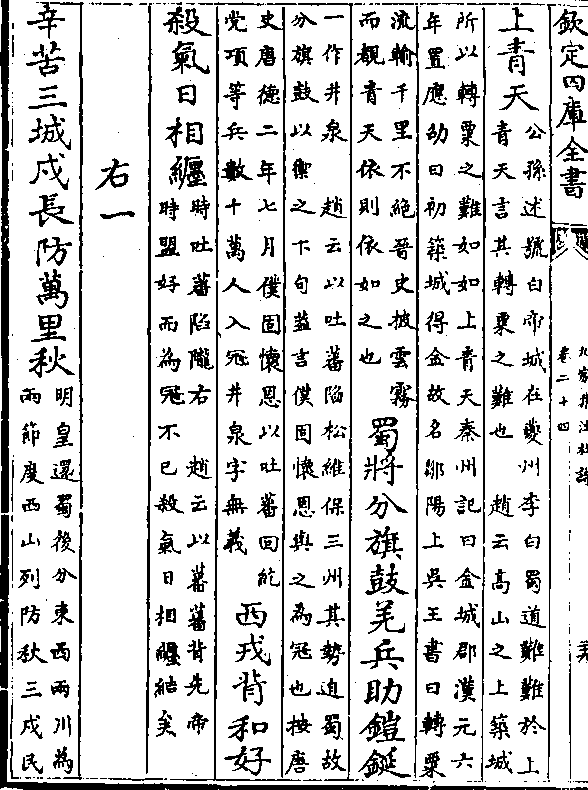 欽定四庫全書
卷二十四
上青天公孫述號白帝城在夔州李白蜀道難難於上
青天言其轉粟之難也　趙云高山之上築城
所以轉粟之難如如上青天秦州記曰金城郡漢元六
年置應劭曰初築城得金故名鄒陽上吳王書曰轉粟
流輸千里不絶晉史披雲霧
而覩青天依則依如之也
蜀將分旗鼓羌兵助鎧鋋
一作井泉　趙云以吐蕃陷松維保三州其勢迫蜀故
分旗鼓以禦之下句蓋言僕固懷恩與之為冦也按唐
史唐德二年七月僕固懷恩以吐蕃回紇
党項等兵數十萬人入冦井泉字無義
西戎背和好
殺氣日相纒時吐蕃陷隴右　趙云以蕃蕃背先帝
時盟好而為冦不已殺氣日相纒結矣
右一
辛苦三城戍長防萬里秋明皇還蜀後分東西兩川為
兩節度西山列防秋三戍民